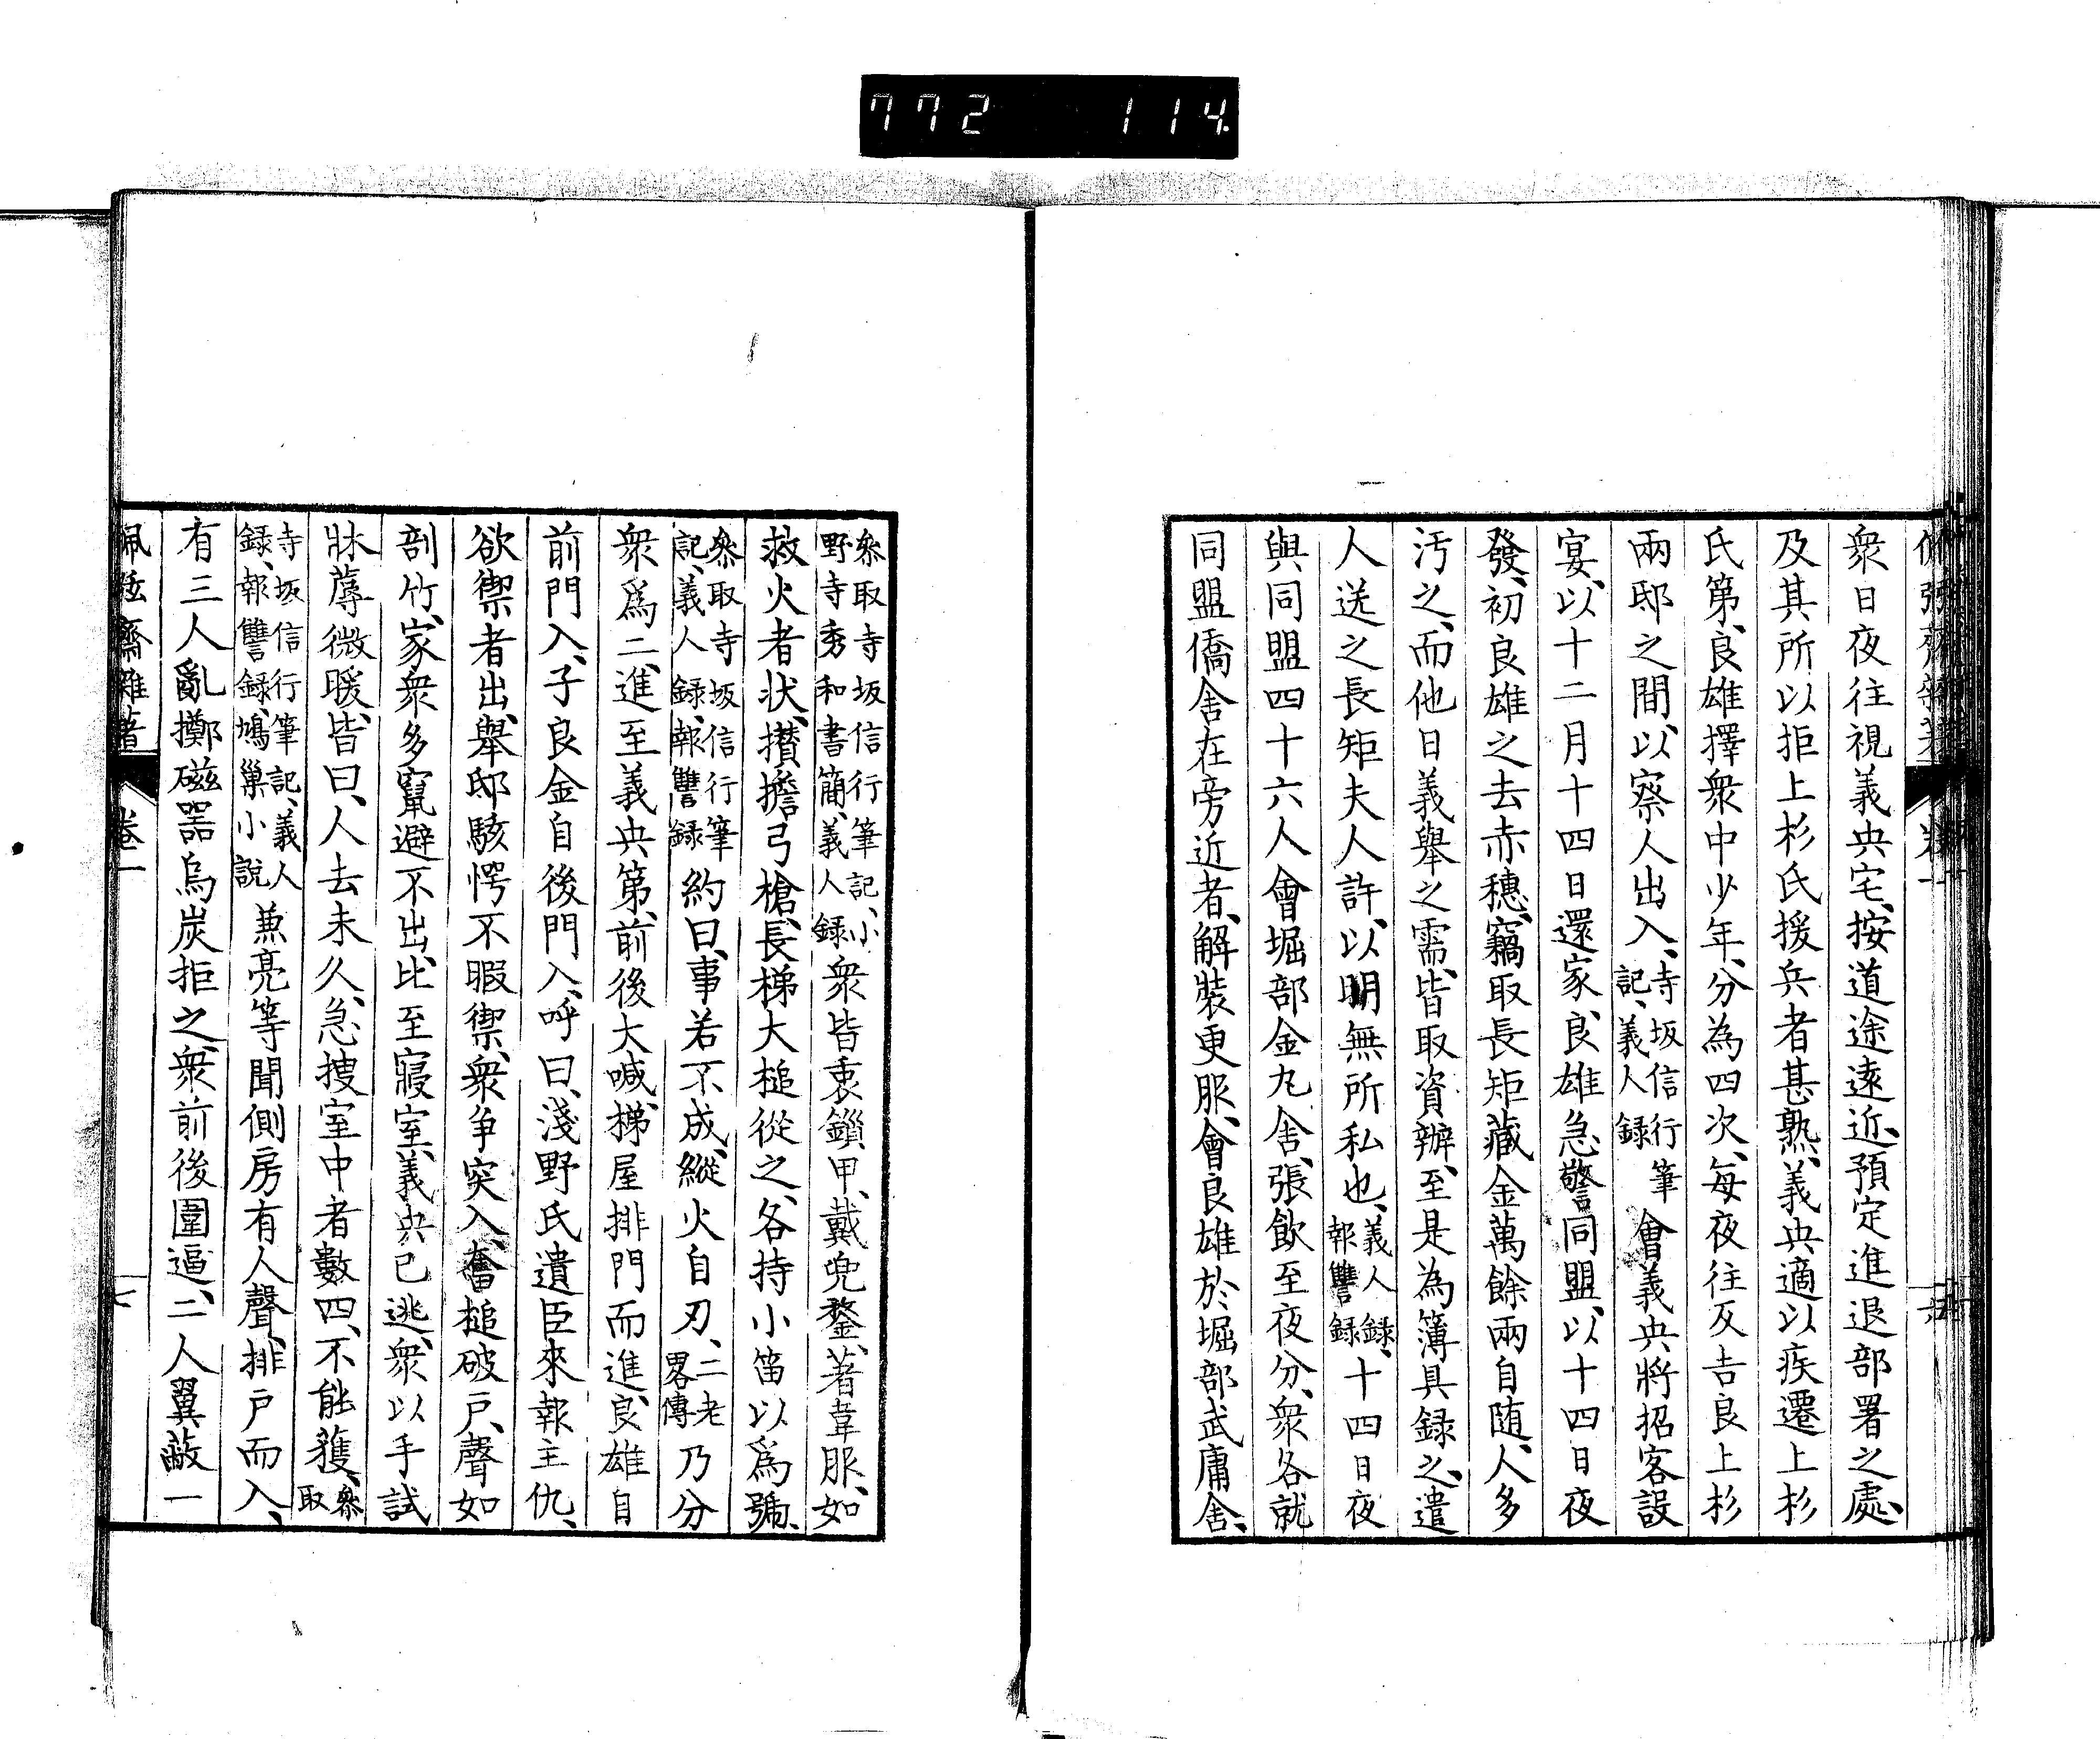 772 114
衆日夜往視義央宅、按道途遠近、預定進退部署之處、
及其所以拒上杉氏援兵者甚熟、義央適以疾遷上杉
氏第、良雄擇衆中少年、分為四次、每夜往反吉良上杉
兩邸之間、以察人出入、寺坂信行筆記、義人録會義央將招客設
宴、以十二月十四日還家、良雄急警同盟、以十四日夜
發、初良雄之去赤穗、竊取長矩藏金萬餘兩自随、人多
汚之、而他日義擧之需、皆取資辦、至是為簿具録之、遣
人送之長矩夫人許、以明無所私也、義人録、報讐録十四日夜
與同盟四十六人會堀部金丸舎、張飲至夜分、衆各就
同盟僑舎在旁近者、解裝更服、會良雄於堀部武庸舎、
叅取寺坂信行筆記、小野寺秀和書簡、義人録衆皆衷鎖甲、戴兜鍪、著韋服、如
救火者状、攅擔弓槍、長梯大槌從之、各持小笛以爲號、
叅取寺坂信行筆記、義人録、報讐録約曰、事若不成、縱火自刃、二老畧傳乃分
衆爲二、進至義央第、前後大喊、梯屋排門而進、良雄自
前門入、子良金自後門入、呼曰、淺野氏遺臣來報主仇、
欲禦者出、舉邸駭愕不暇禦、衆争突入、奮槌破戸、聲如
剖竹、家衆多竄避不出、比至寢室、義央已逃、衆以手試
牀蓐微暖、皆曰、人去未久、急捜室中者數四、不能獲、叅取
寺坂信行筆記、義人録、報讐録、鳩巢小說兼亮等聞側房有人聲、排戸而入、
有三人亂擲磁器烏炭拒之、衆前後圍逼、二人翼蔽一
佩弦齋雜著 卷一 七